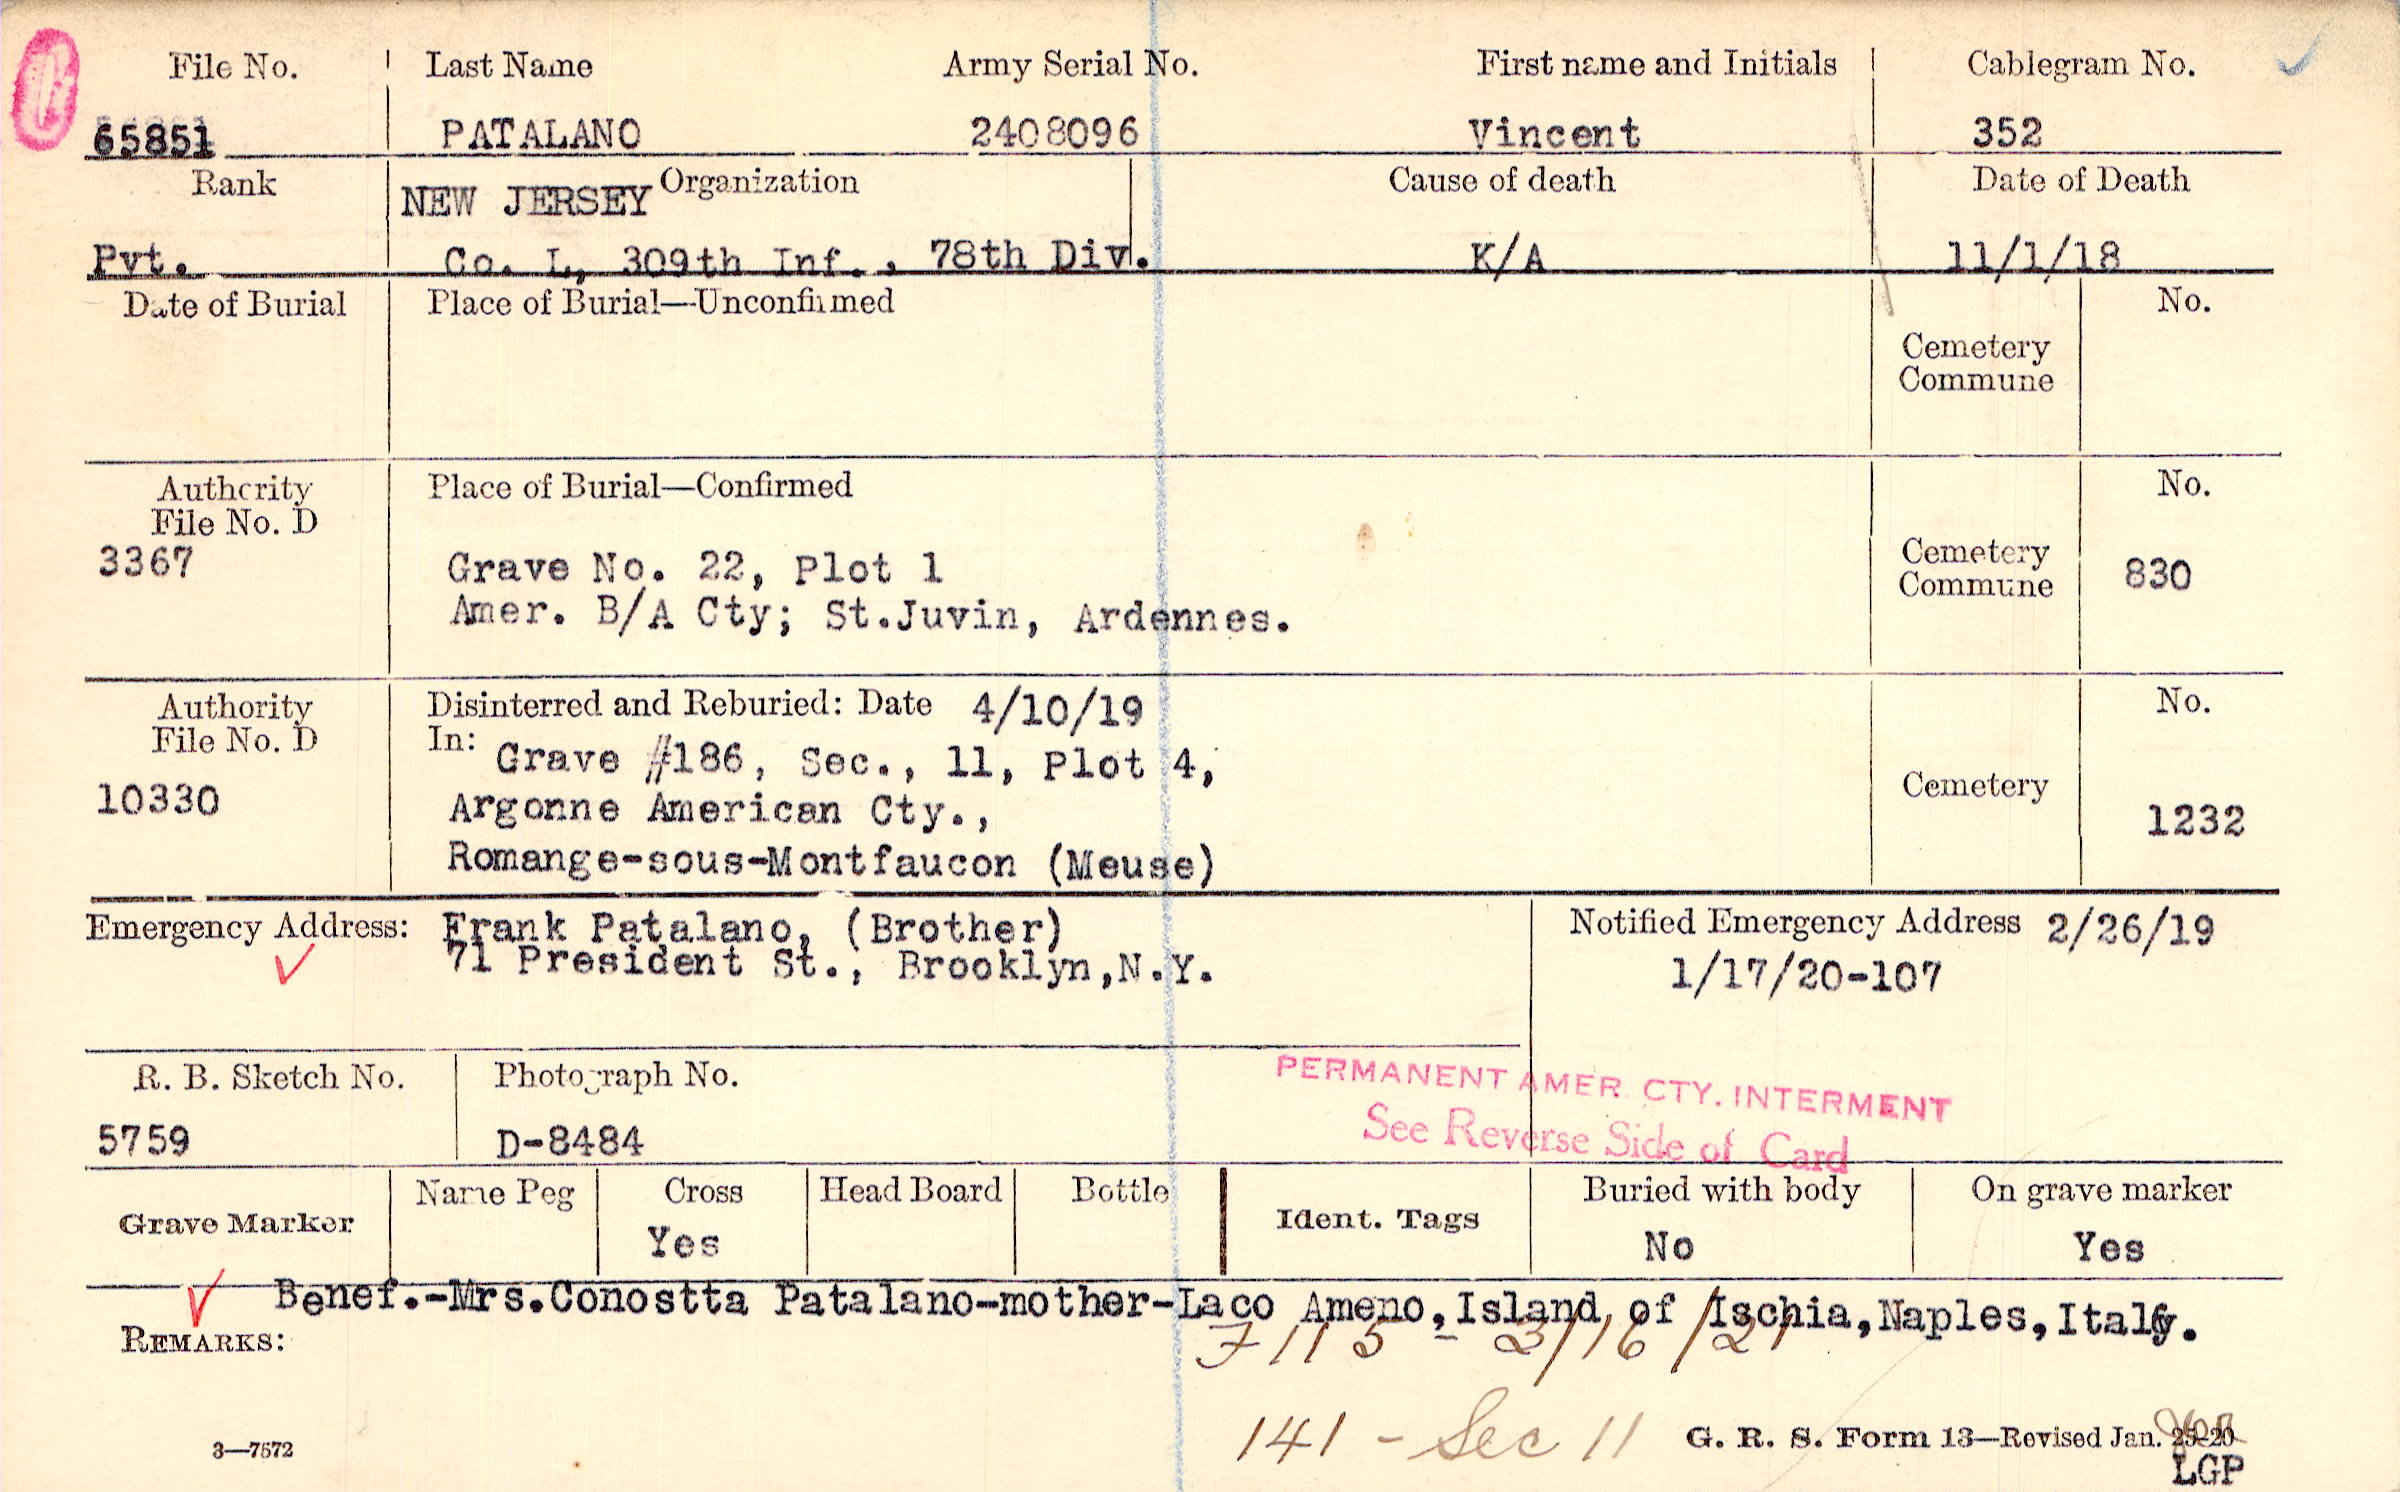 File No. Last Name Army Serial No. First name and Initials Cablegram No.
65851 PATALANO 2408096 Vincent 352
Rank NEW JERSEY Organization Cause of death Date of Death
Pvt. Co. L, 309th Inf., 78th Div. K/A 11/1/18
Date of Burial Place of Burial—Unconfirmed No.
Cemetery
Commune
Authority Place of Burial—Confirmed No.
File No. D
3367 Grave No. 22, Plot 1 Cemetery
Commune 830
Amer. B/A Cty; St.Juvin, Ardennes.
Authority Disinterred and Reburied: Date 4/10/19 No.
File No. D In: Grave #186, Sec., 11, Plot 4,
10330 Argonne American Cty., Cemetery 1232
Romange-sous-Montfaucon (Meuse)
Emergency Address: Frank Patalano, (Brother) Notified Emergency Address 2/26/19
71 President St., Brooklyn,N.Y. 1/17/20-107
R. B. Sketch No. Photograph No. PERMANENT AMER. CTY. INTERMENT
See Reverse Side of Card
5759 D-8484
Grave Marker Name Peg Cross Head Board Bottle Ident. Tags Buried with body On grave marker
Yes No Yes
Benef.-Mrs.Conostta Patalano-mother-Laco Ameno,Island of Ischia,Naples,Italy.
REMARKS: F 115 - 3/16/21
141 - Sec 11
3—7572 G. R. S. Form 13—Revised Jan. 25-20
LGP